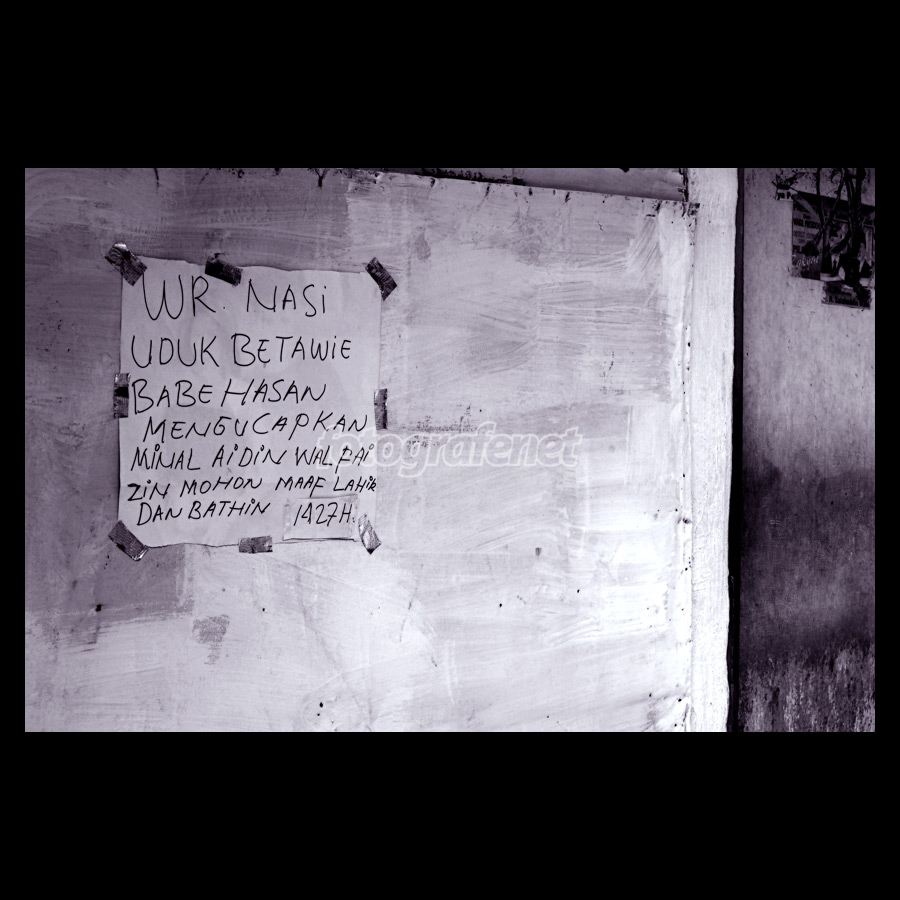 WR. NASi
UDUK BETAWiE
BABE HASAN
MENGUCAPKAN
MiNAL AiDiN WALFAi
ZiN MOHON MAAF LAHiR
DAN BATHiN 1427H.
fotografenet